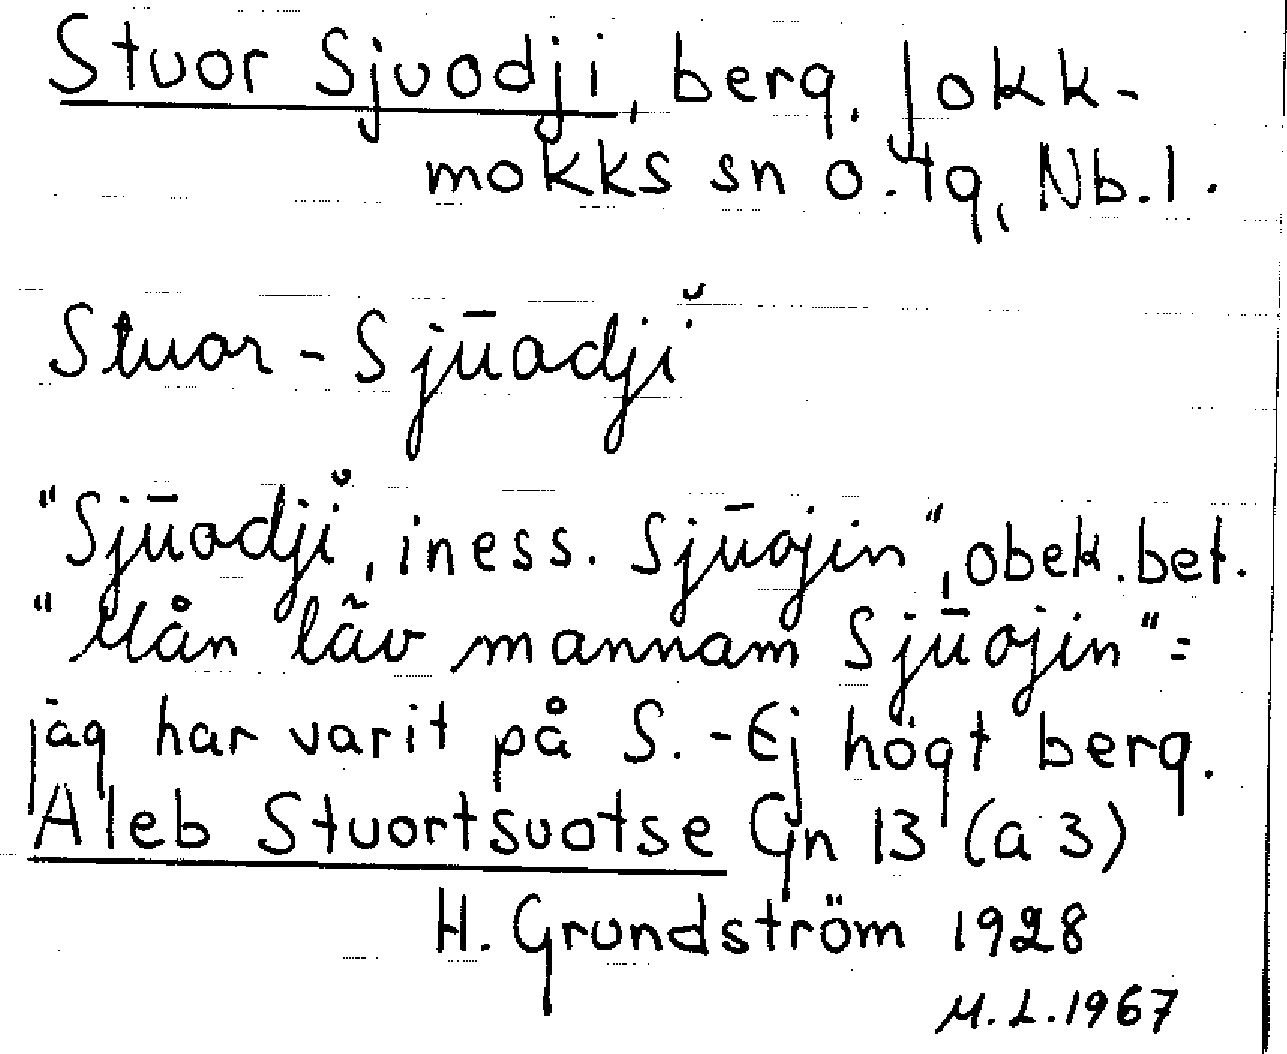 Stuor Sjuodji, berg. Jokk-
mokks sn o. tg, Nb. l.
Stuor-Sjūodjĭ
"Sjūodjĭ, iness. Sjūojin", obek. bet.
"Mån lãv mannam Sjūojin" =
jag har varit på S. - Ej högt berg.
Aleb Stuortsuotse Gn 13 (a 3)
H. Grundström 1928
M. L. 1967